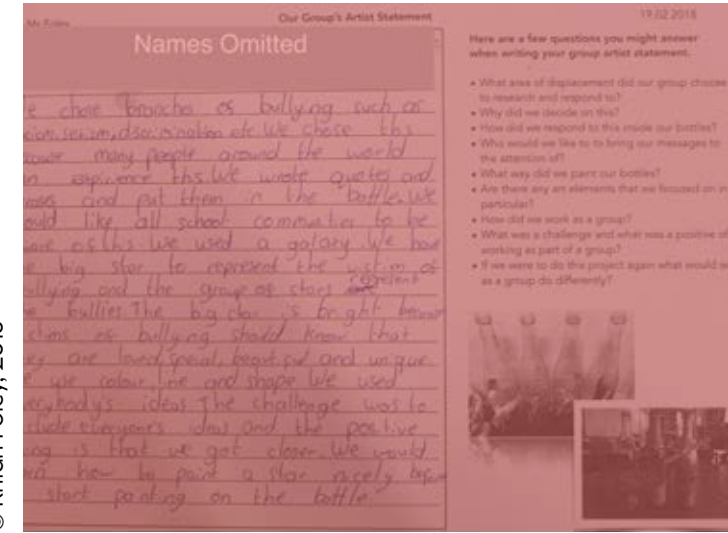 Mr Foley
Our Group's Artist Statement
19.02.2018
Names Omitted
e chose branches of bullying such as
cism, sexism, discrimination etc. We chose this
cause many people around the world
n experience this. We wrote quotes and
and put them in the bottle. We
ould like all school communities to be
are of this. We used a galaxy. We have
e big star to represent the victim of
ullying and the group of stars represent
e bullies. The big star is bright because
ctims of bullying should know that
ey are loved, special, beautiful and unique.
e use colour, line and shape. We used
erybody's ideas. The challenge was to
clude everyone's ideas and the positive
ing is that we got closer. We would
how to paint a star nicely before
start painting on the bottle.
Here are a few questions you might answer
when writing your group artist statement.
• What area of displacement did our group choose
to research and respond to?
• Why did we decide on this?
• How did we respond to this inside our bottles?
• Who would we like to to bring our messages to
the attention of?
• What way did we paint our bottles?
• Are there any art elements that we focused on in
particular?
• How did we work as a group?
• What was a challenge and what was a positive of
working as part of a group?
• If we were to do the project again what would we
as a group do differently?
Foley, 2018